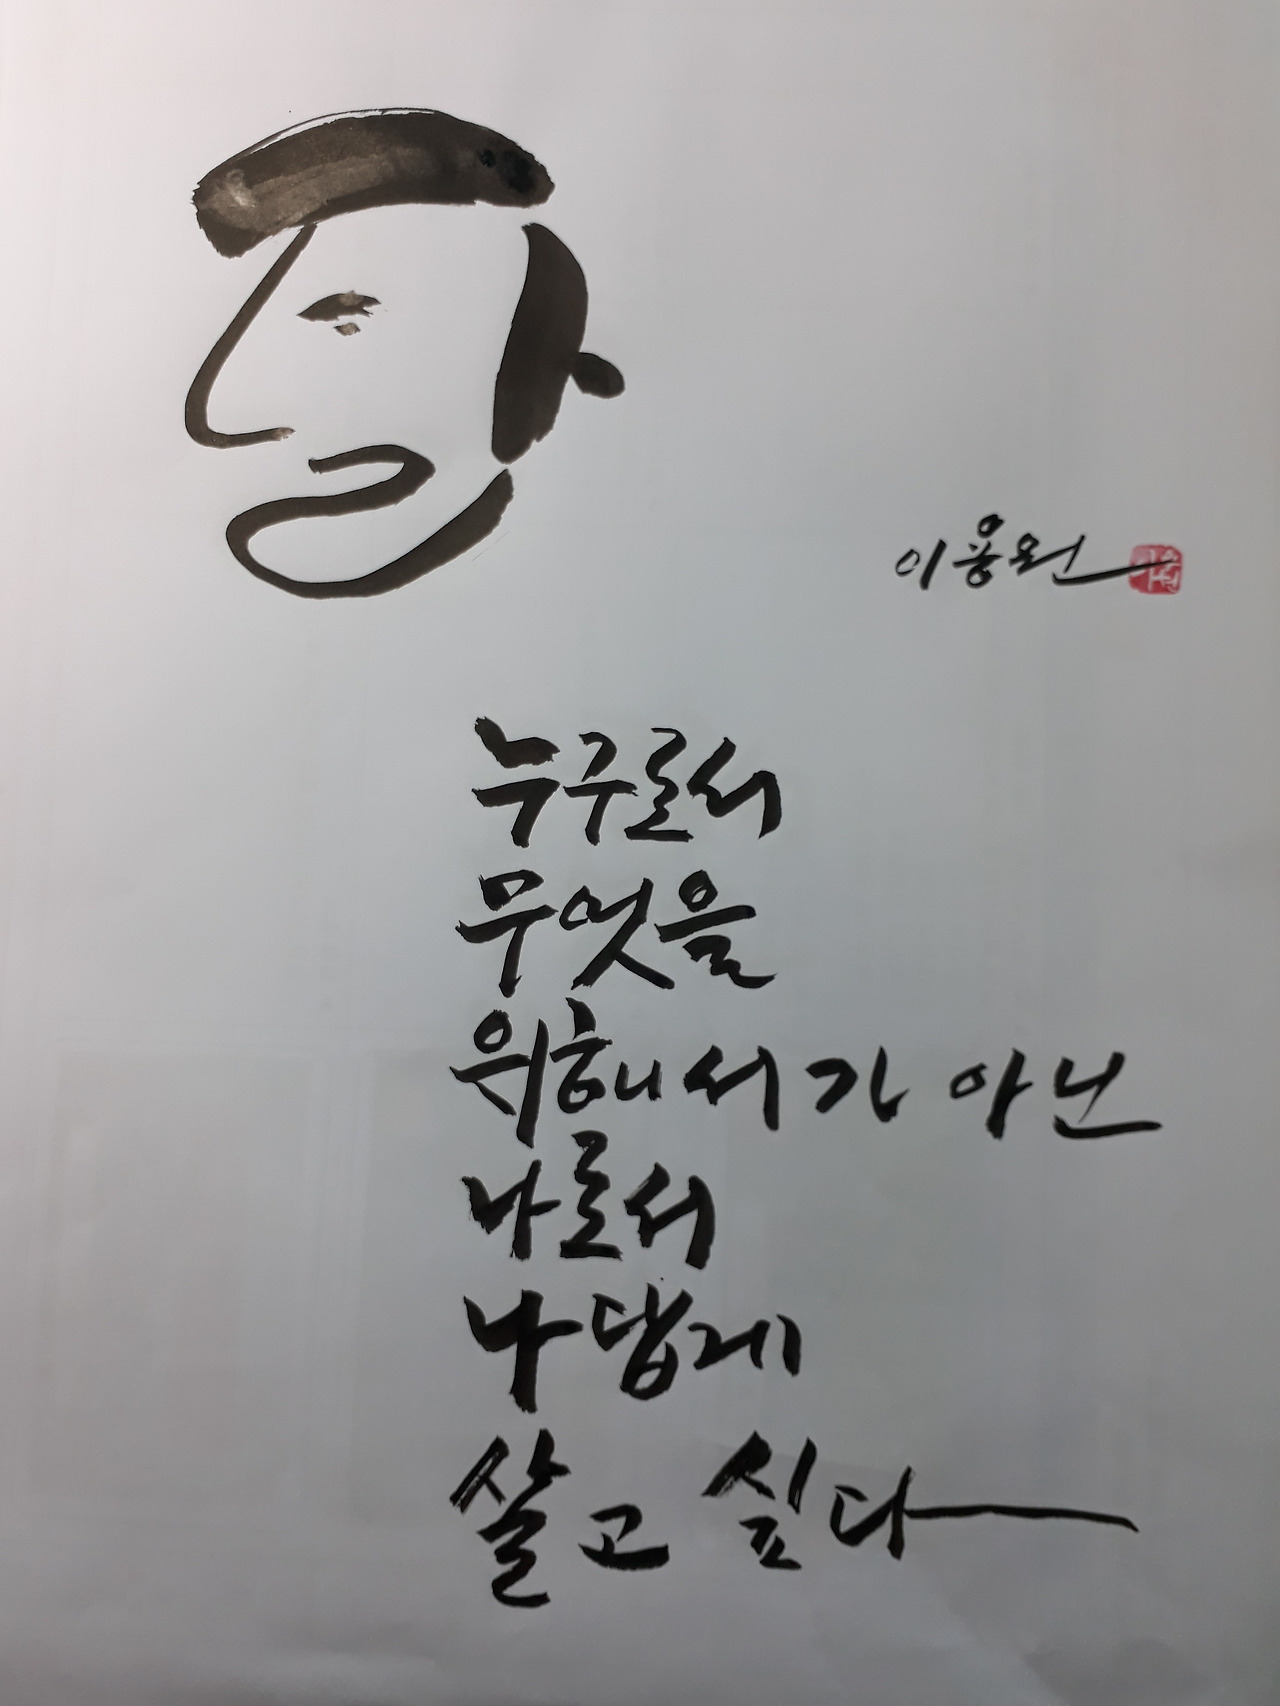 이용원
누구로서
무엇을
위해서가 아닌
나로서
나답게
살고 싶다